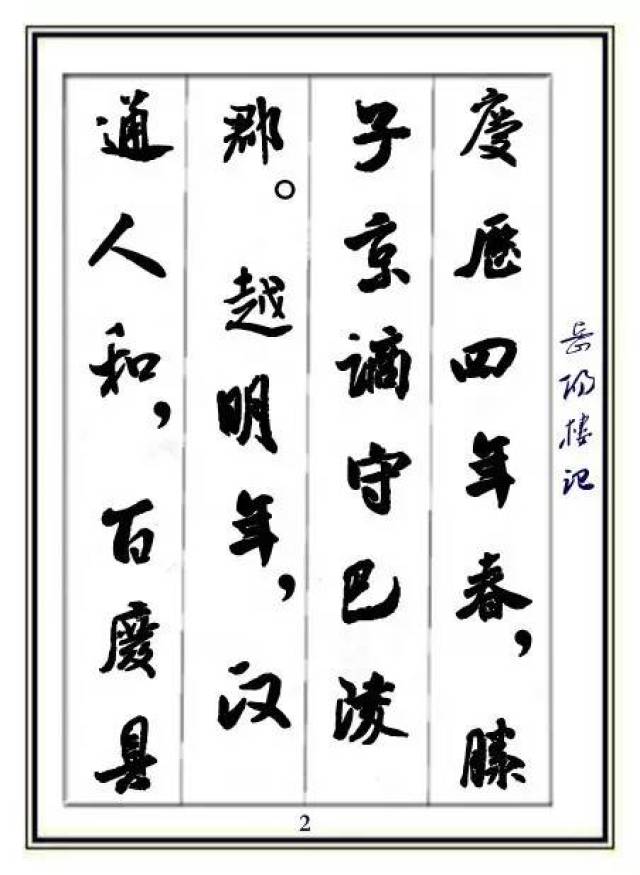 岳阳楼记
慶曆四年春，滕
子京謫守巴陵
郡。越明年，汉
通人和，百廢具
2